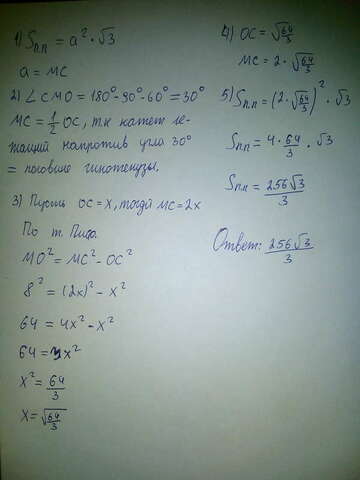 1) Sп.п = a² · √3
a = MC
2) ∠CMO = 180° - 90° - 60° = 30°
MC = 1/2 OC, т.к катет ле-
жащий напротив угла 30°
= половине гипотенузы.
3) Пусть OC = x, тогда MC = 2x
По т. Пифа.
MO² = MC² - OC²
8² = (2x)² - x²
64 = 4x² - x²
x² = 64/3
x = √64/3
4) OC = √64/3
MC = 2 · √64/3
5) Sп.п = (2 · √64/3)² · √3
Sп.п = 4 · 64/3 · √3
Sп.п = 256√3/3
Ответ: 256√3/3